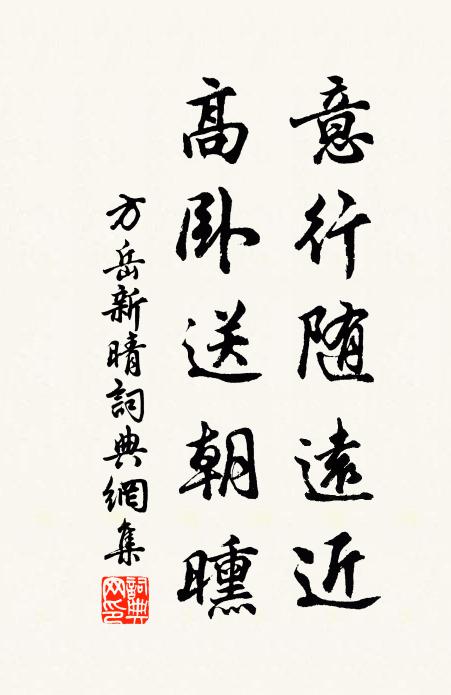 意行随遠近
高卧送朝曛
方岳新晴詞典網集
詞典网印